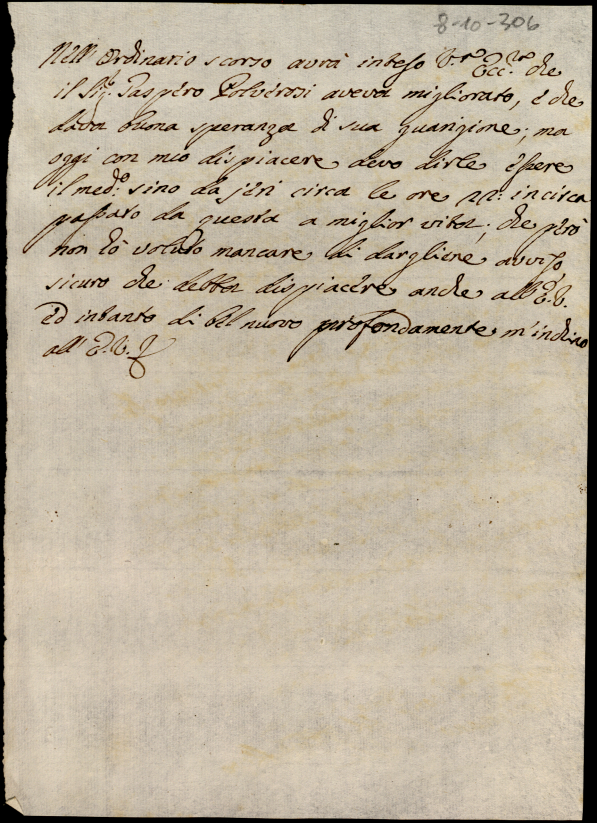 8-10-306
Nell' Ordinario scorso avrà inteso V.ra Ecc.za che
il Sig.r Gaspero Polverosi aveva migliorato, e che
dava buona speranza di sua guarigione; ma
oggi con mio dispiacere devo dirle essere
il med.o sino da jeri circa le ore 22: incirca
passato da questa a miglior vita; che però
non hò voluto mancare di dargliene avviso,
sicuro che debba dispiacere anche all' E. V.
Ed intanto di bel nuovo profondamente m'inchino
all' E. V.